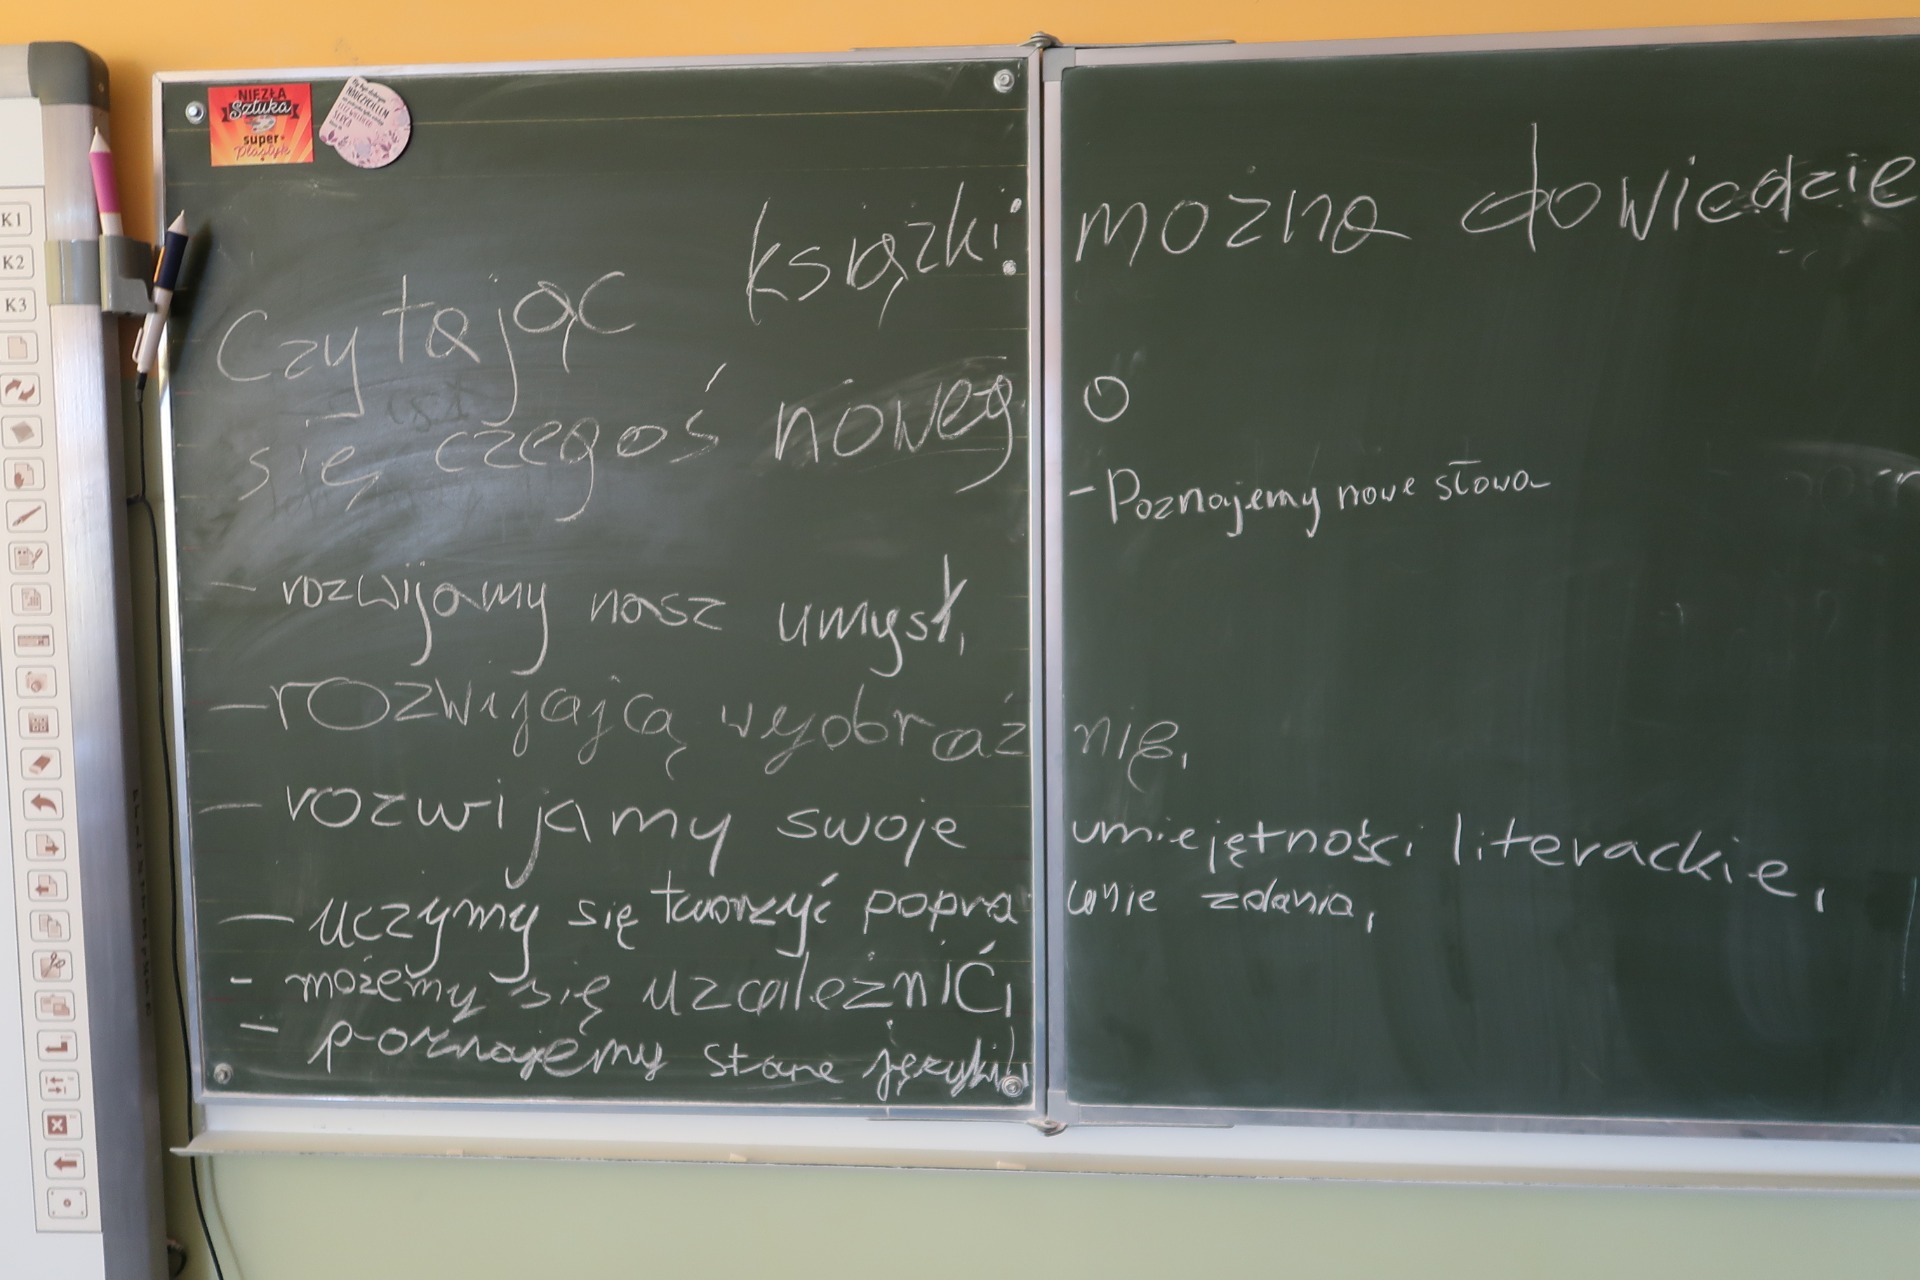 NIEZŁA
Sztuka
super
Plastyk
NAUCZYCIELEM
SERCA
K1
K2
K3
Czytając książki: można dowiedzie
się czegoś nowego
- Poznajemy nowe słowa
- rozwijamy nasz umysł,
- rozwijają wyobraźnię,
- rozwijamy swoje umiejętności literackie,
- uczymy się tworzyć poprawnie zdania,
- możemy się uzależnić,
- poznajemy stare języki,